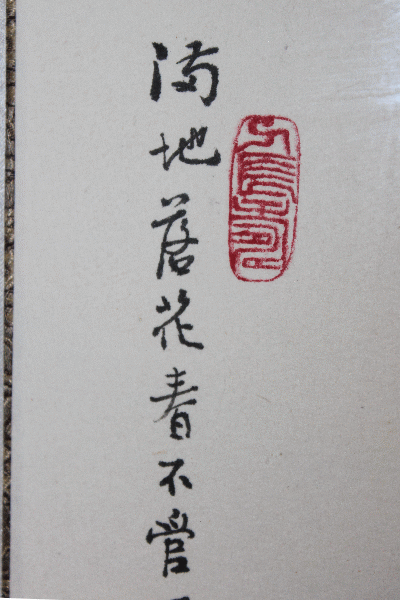 满地落花春不管